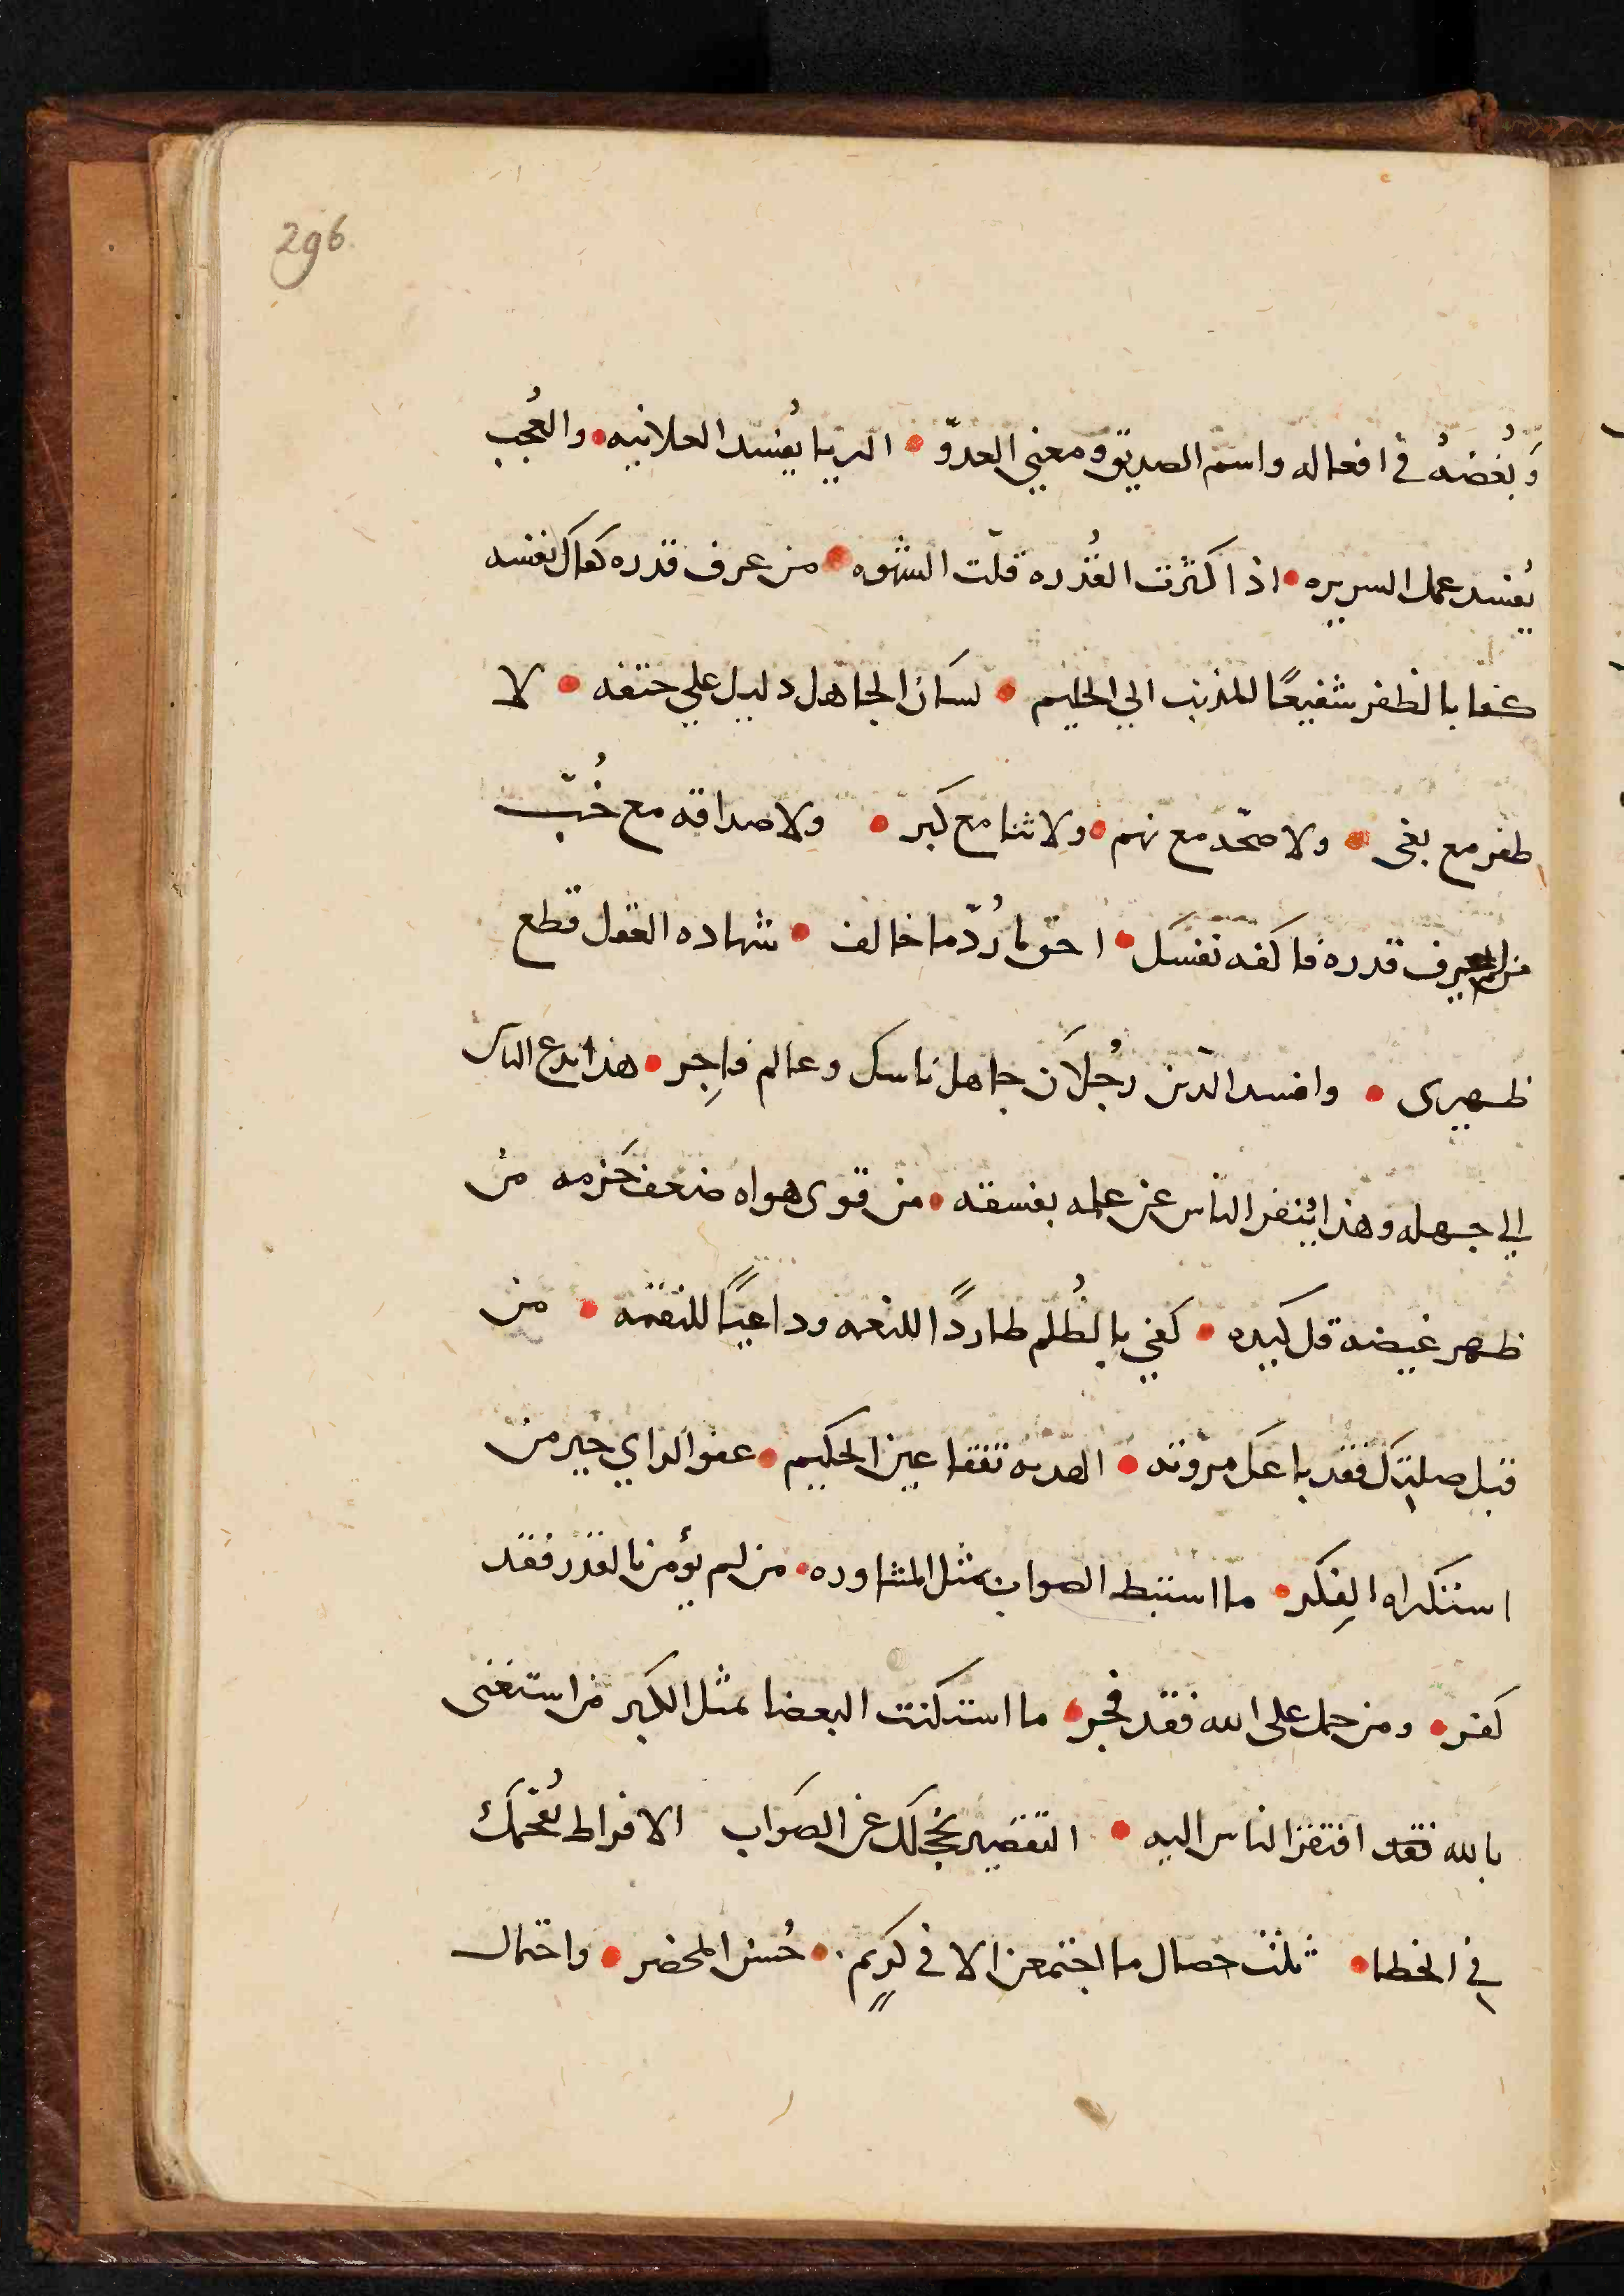 296
وَبُغضهُ في افعاله واسم الصديق ومعني العدوّ • الريا يُفسد العلانيه • والعُجب
يُفسد عمل السريره • اذا كثرت القُدره قلّت الشهوه • من عرف قدره كفاك نفسه
كفا بالظفر شفيعًا للمذنب الي الحليم • لسان الجاهل دليل علي حتفه • لا
ظفر مع بغى • ولا صحّه مع نهم • ولا ثنا مع كبر • ولا صداقه مع خُبّ
من لم يعرف قدره فاكفه نفسك • احق ما رُدّ ما خالف • شهاده العقل قطع
ظهرى • وافسد الدّين رجُلان جاهل ناسك وعالم فاجِر • هذا يدع الناس
الي جهله وهذا يُنفر الناس عن علمه بفسقه • من قوى هواه ضعف حَزمه من
ظهر غيضه قل كيده • كفي بالظُلم طاردًا للنعمه وداعيًا للنقمه • من
قبل صلتك فقد باعك مروته • الهديه تفقا عين الحكيم • عفو الراي خير من
استكراه الفِكر • ما استنبط الصواب بمثل المشاوره • من لم يؤمن بالقدر فقد
كفر • ومن حمل على الله فقد فجر • ما استكنت البغضا بمثل الكبر من استغنى
بالله فقد افتقر الناس اليه • التقصير يخجلك عن الصَواب الافراط يُقحمك
في الخطا • ثلثت خصال ما اجتمعن الا في كريم • حُسن المحضر • واحتمال